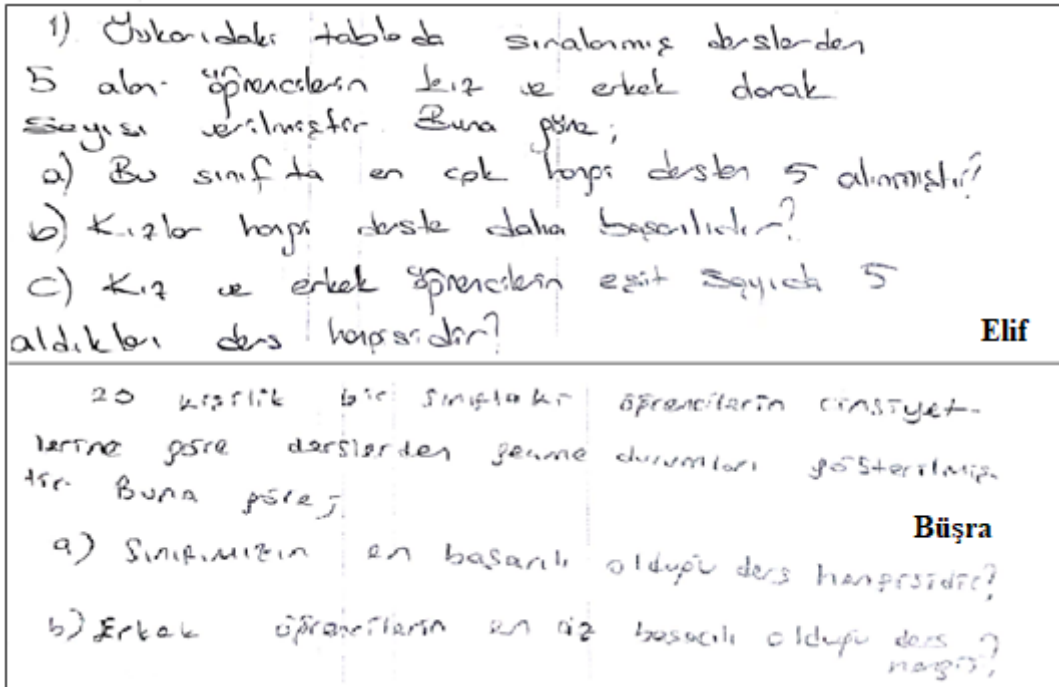 1) Yukarıdaki tabloda sıralanmış derslerden
5 alan öğrencilerin kız ve erkek olarak
sayısı verilmiştir. Buna göre;
a) Bu sınıfta en çok hangi dersten 5 alınmıştır?
b) Kızlar hangi derste daha başarılıdır?
c) Kız ve erkek öğrencilerin eşit sayıda 5
aldıkları ders hangisidir?
Elif
20 kişilik bir sınıftaki öğrencilerin cinsiyet-
lerine göre derslerden geçme durumları gösterilmiş-
tir. Buna göre;
Büşra
a) Sınıfımızın en başarılı olduğu ders hangisidir?
b) Erkek öğrencilerin en az başarılı olduğu ders
hangisi?